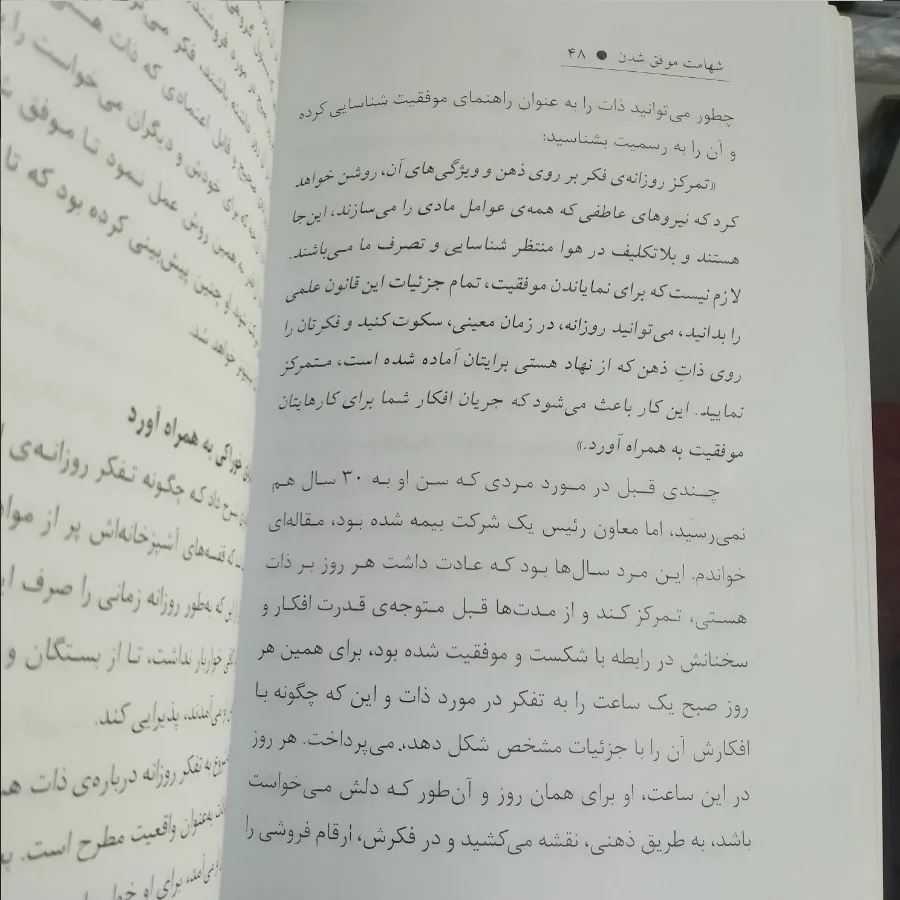 شهامت موفق شدن ● ۴۸
چطور می‌توانید ذات را به عنوان راهنمای موفقیت شناسایی کرده
و آن را به رسمیت بشناسید:
«تمرکز روزانه‌ی فکر بر روی ذهن و ویژگی‌های آن، روشن خواهد
کرد که نیروهای عاطفی که همه‌ی عوامل مادی را می‌سازند، این‌جا
هستند و بلاتکلیف در هوا منتظر شناسایی و تصرف ما می‌باشند.
لازم نیست که برای نمایاندن موفقیت، تمام جزئیات این قانون علمی
را بدانید، می‌توانید روزانه، در زمان معینی، سکوت کنید و فکرتان را
روی ذاتِ ذهن که از نهاد هستی برایتان آماده شده است، متمرکز
نمایید. این کار باعث می‌شود که جریان افکار شما برای کارهایتان
موفقیت به همراه آورد.»
چندی قبل در مورد مردی که سن او به ۳۰ سال هم
نمی‌رسید، اما معاون رئیس یک شرکت بیمه شده بود، مقاله‌ای
خواندم. این مرد سال‌ها بود که عادت داشت هر روز بر ذات
هستی، تمرکز کند و از مدت‌ها قبل متوجه‌ی قدرت افکار و
سخنانش در رابطه با شکست و موفقیت شده بود، برای همین هر
روز صبح یک ساعت را به تفکر در مورد ذات و این که چگونه با
افکارش آن را با جزئیات مشخص شکل دهد، می‌پرداخت. هر روز
در این ساعت، او برای همان روز و آن‌طور که دلش می‌خواست
باشد، به طریق ذهنی، نقشه می‌کشید و در فکرش، ارقام فروشی را
فکر
قابل اعتمادی که ذات
برای خودش و دیگران می‌خواست را
همین روش عمل نمود تا موفق
او چنین پیش‌بینی کرده بود که تا
خواهد شد.
خوراکی به همراه آورد
شرح داد که چگونه تفکر روزانه‌ی
که قفسه‌های آشپزخانه‌اش پر از
که به‌طور روزانه زمانی را صرف
خواربار نداشت، تا از بستگان و
می‌آمدند، پذیرایی کند.
به تفکر روزانه درباره‌ی ذات
به‌عنوان واقعیت مطرح است.
می‌آمد، برای او